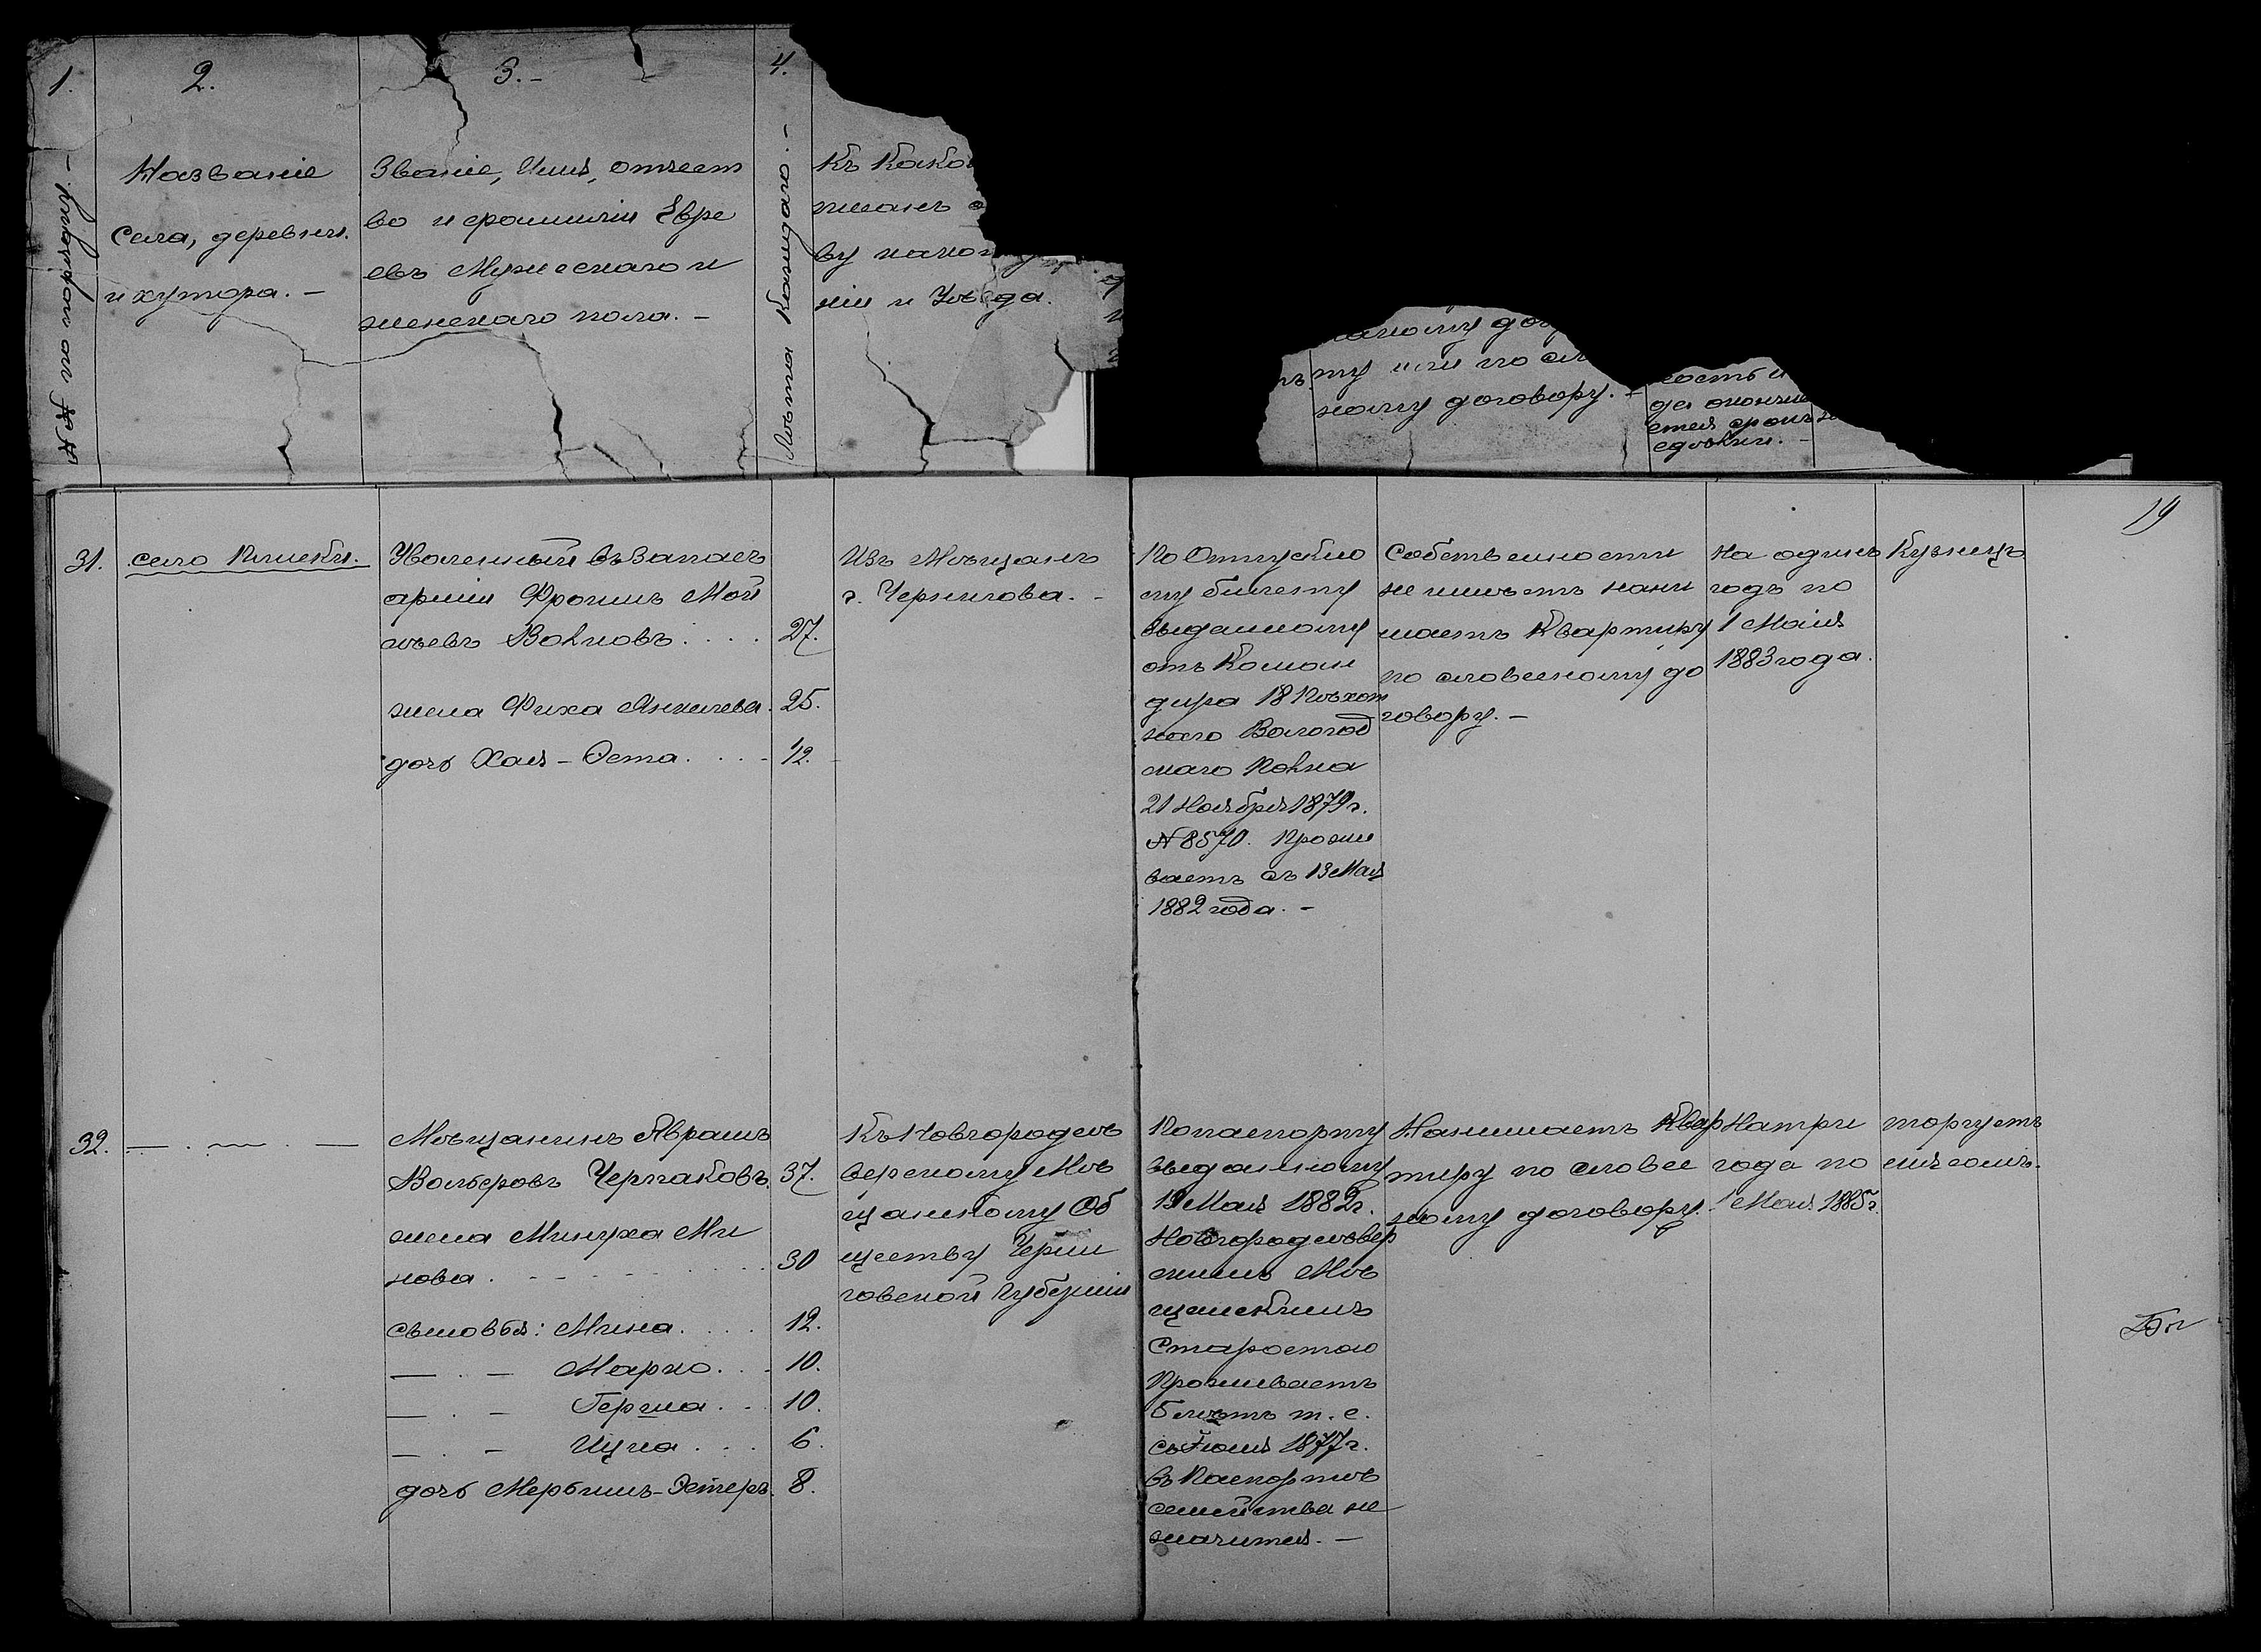 1.
2.
3.-
4.
№№ по порядку.-
Названіе
села, деревни.
и хутора.-
Званіе, Имя, отчест
во и фамиліи Евре
евъ Мужескаго и
женскаго пола.-
Лѣта каждаго.-
Къ како
писанъ
ву како
ніи и Уѣзда.
ту или по сло
ному договору.-
ность и
да оконч
ется срокъ
сдѣлки.-
19
31.
село Клишки.
Уволенный въ запасъ
арміи Фроимъ Мой
сѣевъ Войновъ....
27.
жена Фиха Янкилева.
25.
дочь Хая-Эста....
12.
Изъ Мѣщанъ
г. Чернигова.-
По Отпускно
му билету
выданному
отъ Коман
дира 18 Пѣхот
наго Вологод
скаго Полка
21 Ноября 1879 г.
№ 8570. Прожи
ваетъ съ 13 Мая
1882 года.-
Собственности
не имѣетъ нани
маетъ квартиру
по словесному до
говору.-
На одинъ
годъ по
1 Маія
1883 года.
Кузнецъ
32.
— . — . —
Мѣщанинъ Абрамъ
Вольфовъ Черпаковъ.
37.
жена Минуха Ми
нова.
30
сыновья: Мина....
12.
— . — Марко...
10.
— . — Гершка...
10.
— . — Ицка....
6.
дочь Мербимъ-Эстеръ.
8.
Къ Новгородсѣ
верскому Мѣ
щанскому Об
ществу Черни
говской Губерніи
По паспорту
выданному
19 Мая 1882 г.
Новгородсѣвер
скимъ Мѣ
щанскимъ
Старостою
Проживаетъ
5 лѣтъ т.е.
съ Іюня 1877 г.
въ Паспортѣ
семейства не
значится.-
Нанимаетъ квар
тиру по словес
ному договору.
На три
года по
1 Мая 1885 г.
торгуетъ
мясомъ.